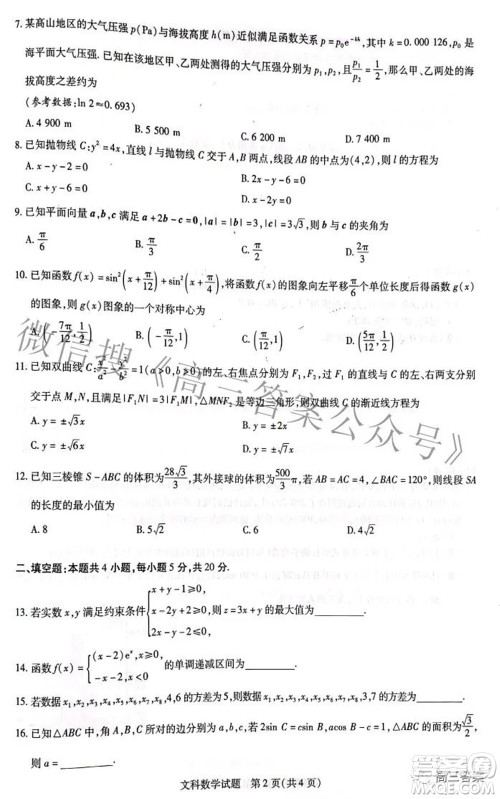 7. 某高山地区的大气压强 p(Pa)与海拔高度 h(m)近似满足函数关系 p=p₀e⁻ᵏʰ,其中 k=0.000 126, p₀ 是海
平面大气压强. 已知在该地区甲、乙两处测得的大气压强分别为 p₁,p₂,且 p₁/p₂=1/2,那么甲、乙两处的海拔高度之差
约为
(参考数据:ln 2≈0.693)
A. 4 900 m B. 5 500 m C. 6 200 m D. 7 400 m
8. 已知抛物线 C:y²=4x,直线 l 与抛物线 C 交于 A,B 两点,线段 AB 的中点为(4,2),则 l 的方程为
A. x-y-2=0 B. 2x-y-6=0
C. x-2y=0 D. x+y-6=0
9. 已知平面向量 a,b,c 满足 a+2b-c=0,|a|=|b|=3,|c|=3√3,则 b 与 c 的夹角为
A. π/6 B. π/3 C. π/2 D. 2π/3
10. 已知函数 f(x)=sin²(x+π/12)+sin²(x+π/4),将函数 f(x)的图象向左平移 π/6 个单位长度后得函数 g(x)
的图象,则 g(x)图象的一个对称中心为
A. (-7π/12,1/2) B. (-π/12,1) C. (π/12,1) D. (5π/12,1/2)
11. 已知双曲线 C:x²/a²-y²/b²=1(a>0,b>0)的左、右焦点分别为 F₁,F₂,过 F₂ 的直线与 C 的左、右两支分别
交于点 M,N,且满足|F₁N|=|F₁M|,△MNF₁ 为等边三角形,则双曲线 C 的渐近线方程为
A. y=±√3x B. y=±√5x
C. y=±√6x D. y=±√7x
12. 已知三棱锥 S-ABC 的体积为 28√3/3,其外接球的体积为 500/3 π,若 AB=AC=4,∠BAC=120°,则线段 SA
的长度的最小值为
A. 8 B. 5√2 C. 6 D. 4√2
二、填空题:本题共 4 小题,每小题 5 分,共 20 分.
13. 若实数 x,y 满足约束条件 { x+y-1≥0, x-y+1≥0, 则 z=3x+y 的最大值为
14. 函数 f(x)= { (x-2)eˣ,x≥0 的单调递减区间为
15. 若数据 x₁,x₂,x₃,x₄,x₅,x₆,x₇,x₈,4,6 的方差为 5,则数据 x₁,x₂,x₃,x₄,x₅,x₆,x₇,x₈,3,7 的方差为
16. 已知△ABC 的内角 A,B,C 的对边分别为 a,b,c,若 2sinB=csinB,acosB=bsinA,且△ABC 的面积为 √3/2,
则 a=
文科数学试题 第 2 页(共 4 页)
微信搜《高三答案公众号》
高三答案